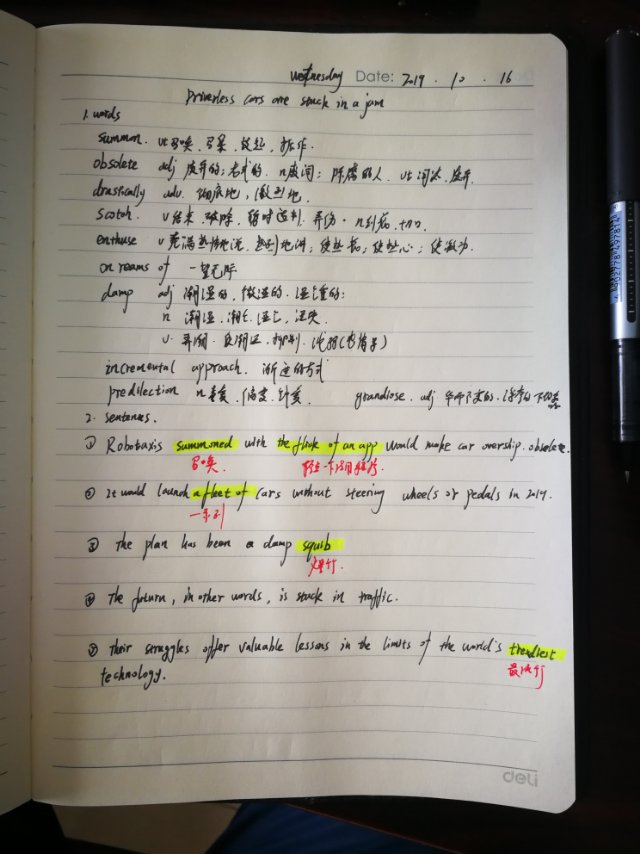 Wednesday Date: 2019 . 10 . 16
Driverless cars are stuck in a jam
1. words
summon. vt 召唤, 号召, 鼓起, 振作.
obsolete adj 废弃的; 老式的. n 废词; 陈腐的人. vt 淘汰, 废弃
drastically adv. 彻底地, 激烈地.
scotch. v 结束 破除. 暂时遏制. 弄伤. n 刻痕. 切口
enthuse v 充满热情地说.
on reams of 一望无际
damp adj 潮湿的, 微湿的.
n 潮湿, 潮气.
v. 弄潮.
incremental approach. 渐进的方式
predilection n 喜爱, 偏爱, 钟爱 grandiose. adj
2. sentences.
① Robotaxis summoned with the flick of an app would make car owership. obsolete.
召唤.
② It would launch a fleet of cars without steering wheels or pedals in 2019.
一系列
③ The plan has been a damp squib
爆竹.
④ The future, in other words, is stuck in traffic.
⑤ Their struggles offer valuable lessons in the limits of the world's trendiest
technology.
最流行
deli
4902778749784